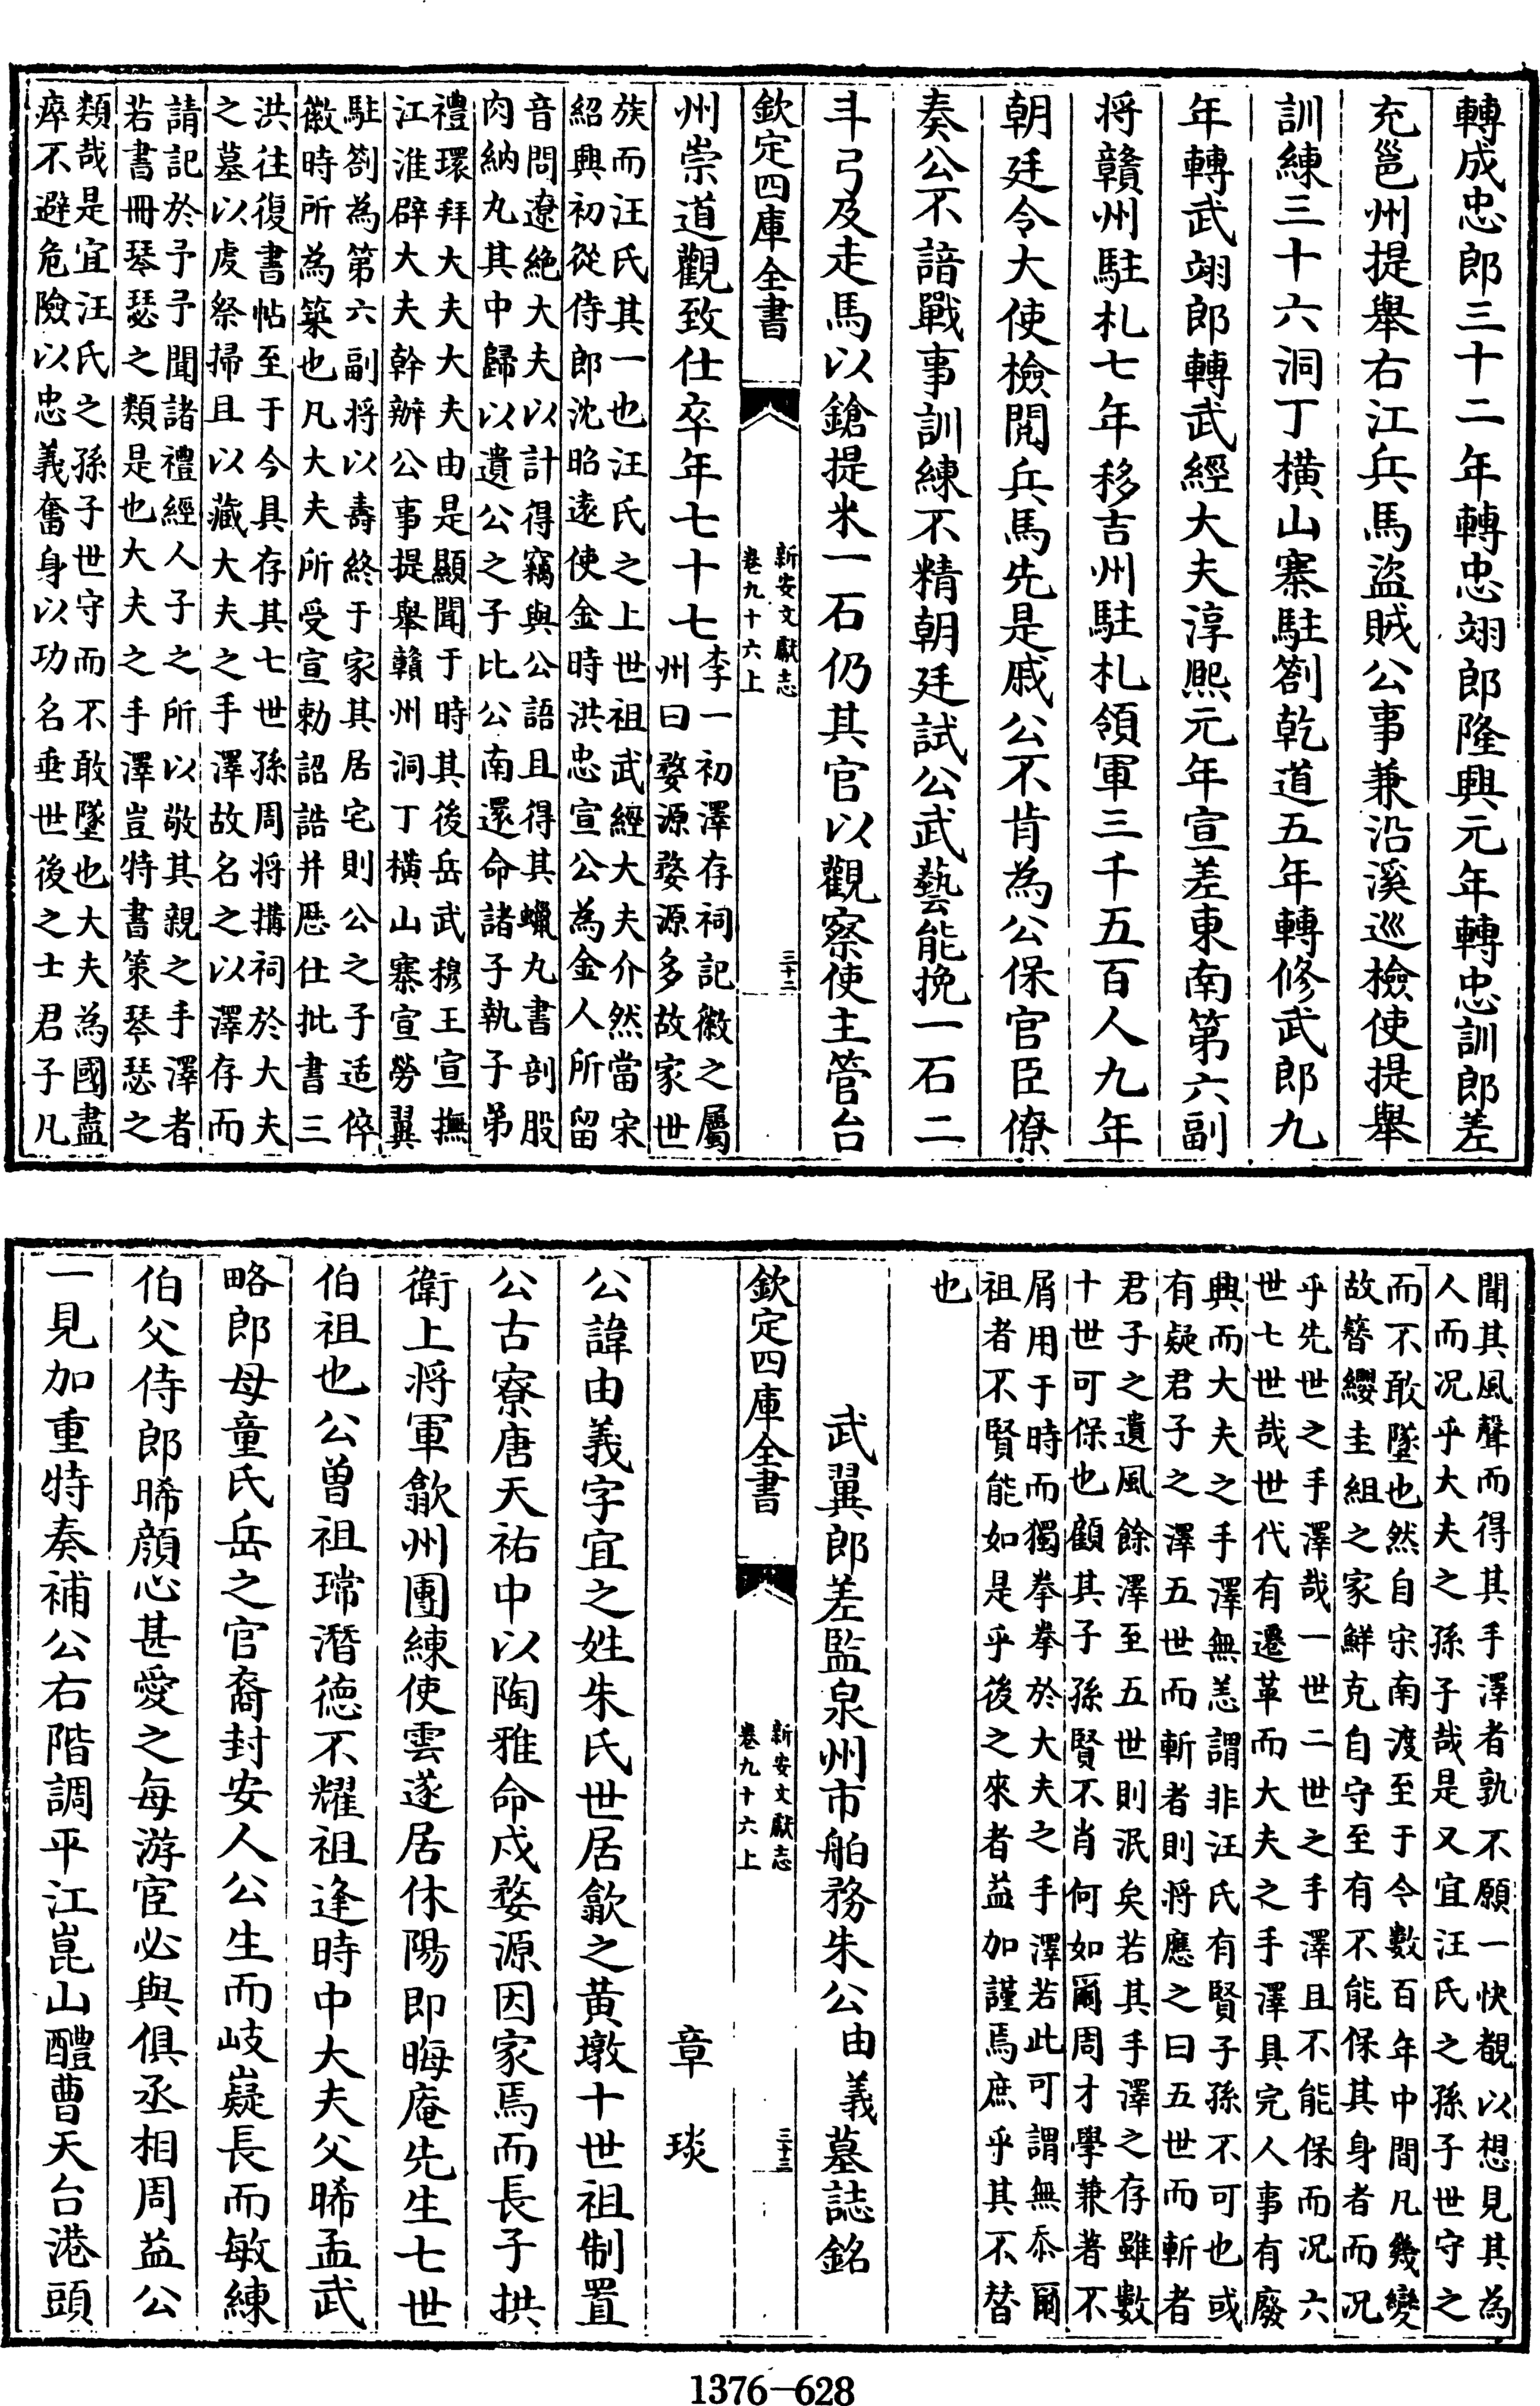 轉成忠郎三十二年轉忠翊郎隆興元年轉忠訓郎差
充邕州提舉右江兵馬盜賊公事兼沿溪巡檢使提舉
訓練三十六洞丁橫山寨駐劄乾道五年轉修武郎九
年轉武翊郎轉武經大夫淳熙元年宣差東南第六副
将贛州駐札七年移吉州駐札領軍三千五百人九年
朝廷令大使檢閲兵馬先是戚公不肯為公保官臣僚
奏公不諳戰事訓練不精朝廷試公武藝能挽一石二
斗弓及走馬以鎗提米一石仍其官以觀察使主管台
欽定四庫全書
新安文獻志
卷九十六上
三十二
州崇道觀致仕卒年七十七
李一初澤存祠記徽之屬
州曰婺源婺源多故家世
族而汪氏其一也汪氏之上世祖武經大夫介然當宋
紹興初從侍郎沈昭遠使金時洪忠宣公為金人所留
音問遼絶大夫以計得竊與公語且得其蠟九書剖股
肉納九其中歸以遺公之子比公南還命諸子執子弟
禮環拜大夫大夫由是顯聞于時其後岳武穆王宣撫
江淮辟大夫幹辦公事提舉贛州洞丁橫山寨宣勞翼
駐劄為第六副将以壽終于家其居宅則公之子适倅
徽時所為築也凡大夫所受宣勅詔誥并歴仕批書三
洪往復書帖至于今具存其七世孫周将搆祠於大夫
之墓以虔祭掃且以藏大夫之手澤故名之以澤存而
請記於予予聞諸禮經人子之所以敬其親之手澤者
若書冊琴瑟之類是也大夫之手澤豈特書策琴瑟之
類哉是宜汪氏之孫子世守而不敢墜也大夫為國盡
瘁不避危險以忠義奮身以功名垂世後之士君子凡
聞其風聲而得其手澤者孰不願一快覩以想見其為
人而况乎大夫之孫子哉是又宜汪氏之孫子世守之
而不敢墜也然自宋南渡至于今數百年中間凡幾變
故簪纓圭組之家鮮克自守至有不能保其身者而况
乎先世之手澤哉一世二世之手澤且不能保而况六
世七世哉世代有遷革而大夫之手澤具完人事有廢
興而大夫之手澤無恙謂非汪氏有賢子孫不可也或
有疑君子之澤五世而斬者則将應之曰五世而斬者
君子之遺風餘澤至五世則泯矣若其手澤之存雖數
十世可保也顧其子孫賢不肖何如爾周才學兼著不
屑用于時而獨拳拳於大夫之手澤若此可謂無忝爾
祖者不賢能如是乎後之來者益加謹焉庶乎其不替
也
武翼郎差監泉州市舶務朱公由義墓誌銘
欽定四庫全書
新安文獻志
卷九十六上
三十三
章琰
公諱由義字宜之姓朱氏世居歙之黃墩十世祖制置
公古寮唐天祐中以陶雅命戍婺源因家焉而長子拱
衛上将軍歙州團練使雲遂居休陽即晦庵先生七世
伯祖也公曾祖瑺潛德不耀祖逢時中大夫父晞孟武
略郎母童氏岳之官裔封安人公生而岐嶷長而敏練
伯父侍郎晞顔心甚愛之每游宦必與俱丞相周益公
一見加重特奏補公右階調平江崑山醴曹天台港頭
1376-628